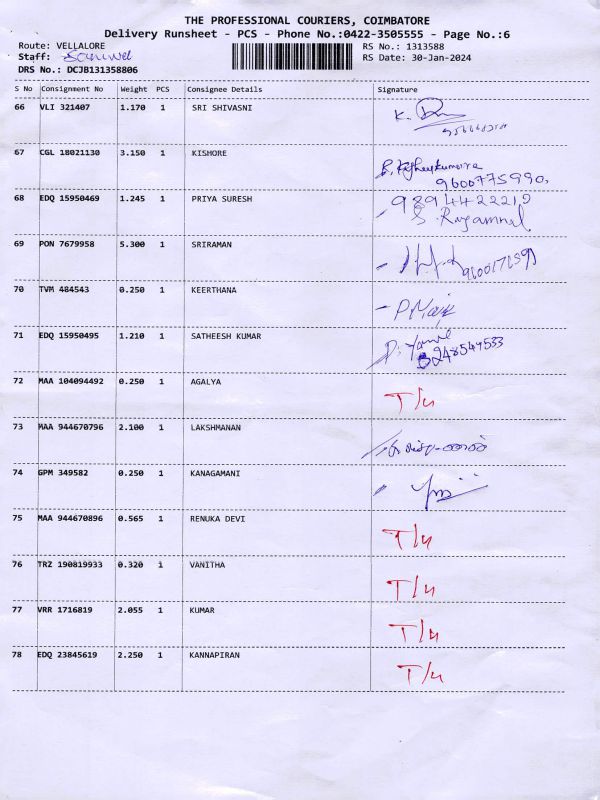 THE PROFESSIONAL COURIERS, COIMBATORE
Delivery Runsheet - PCS - Phone No.:0422-3505555 - Page No.:6
Route: VELLALORE RS No.: 1313588
Staff: RS Date: 30-Jan-2024
DRS No.: DCJB131358806
S No Consignment No Weight PCS Consignee Details Signature
66 VLI 321407 1.170 1 SRI SHIVASNI
K.
67 CGL 18021130 3.150 1 KISHORE
9600775990.
68 EDQ 15950469 1.245 1 PRIYA SURESH
9894422219
S.
69 PON 7679958 5.300 1 SRIRAMAN
70 TVM 484543 0.250 1 KEERTHANA
71 EDQ 15950495 1.210 1 SATHEESH KUMAR
72 MAA 104094492 0.250 1 AGALYA T/4
73 MAA 944670796 2.100 1 LAKSHMANAN
74 GPM 349582 0.250 1 KANAGAMANI
75 MAA 944670896 0.565 1 RENUKA DEVI T/4
76 TRZ 190819933 0.320 1 VANITHA T/4
77 VRR 1716819 2.055 1 KUMAR T/4
78 EDQ 23845619 2.250 1 KANNAPIRAN T/4